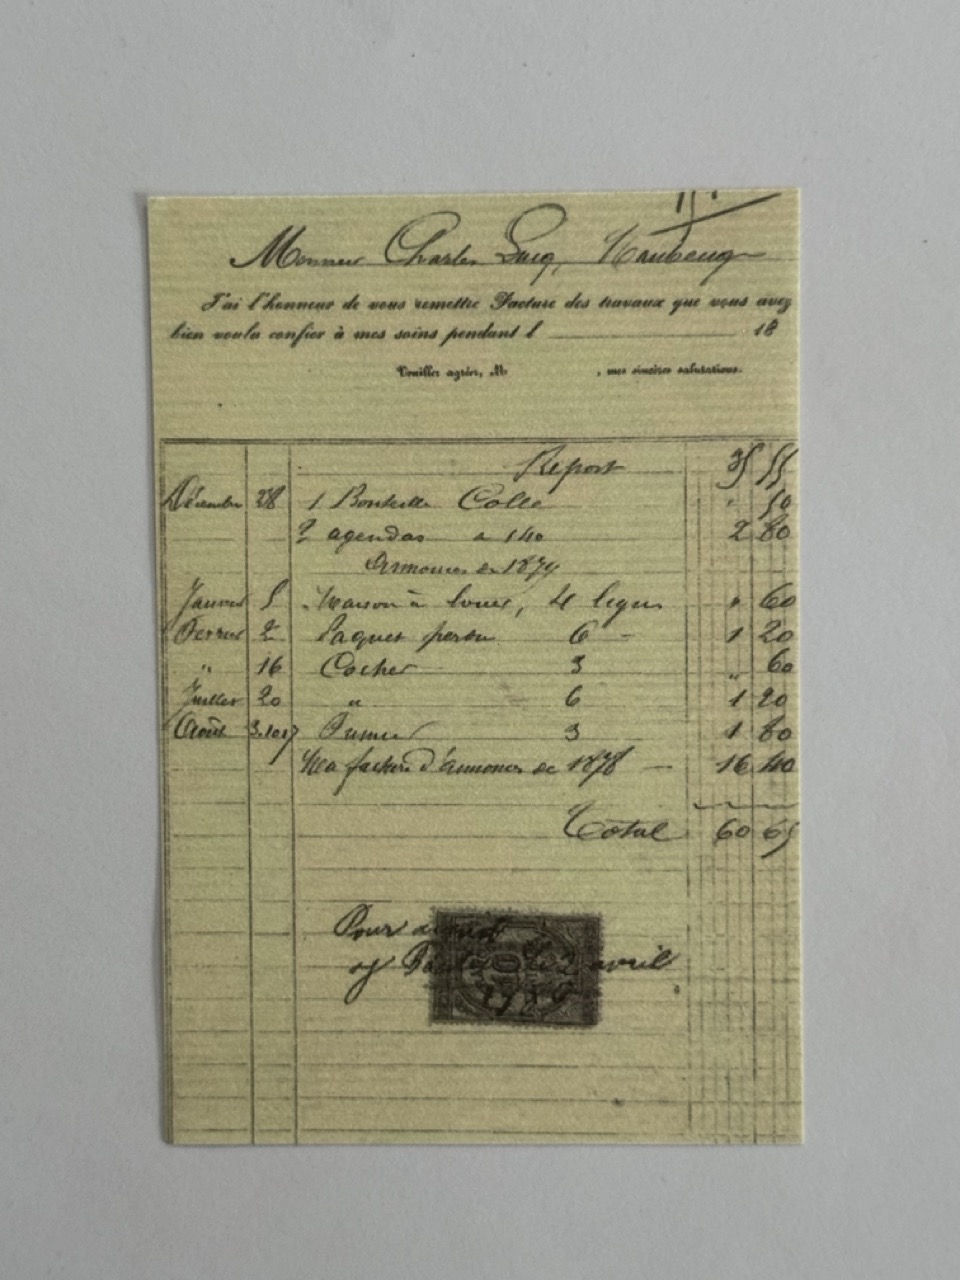 Monsieur Charles Lucq, Maubeuge
J'ai l'honneur de vous remettre Facture des travaux que vous avez
bien voulu confier à mes soins pendant l 18
Veuillez agréer, M , mes sincères salutations.
Report 35 55
Décembre 28 1 Bouteille Colle " 50
2 agendas a 140 2 80
Annonces de 1879
Janvier 5 Maison à louer, 4 lignes " 60
Fevrier 2 Paquet perdu 6 - 1 20
" 16 Cocher 3 " 60
Juillet 20 " 6 1 20
Août 3.10.17 3 1 80
Ma facture d'annonces de 1878 — 16 40
Total 60 65
Pour acquit
2 avril